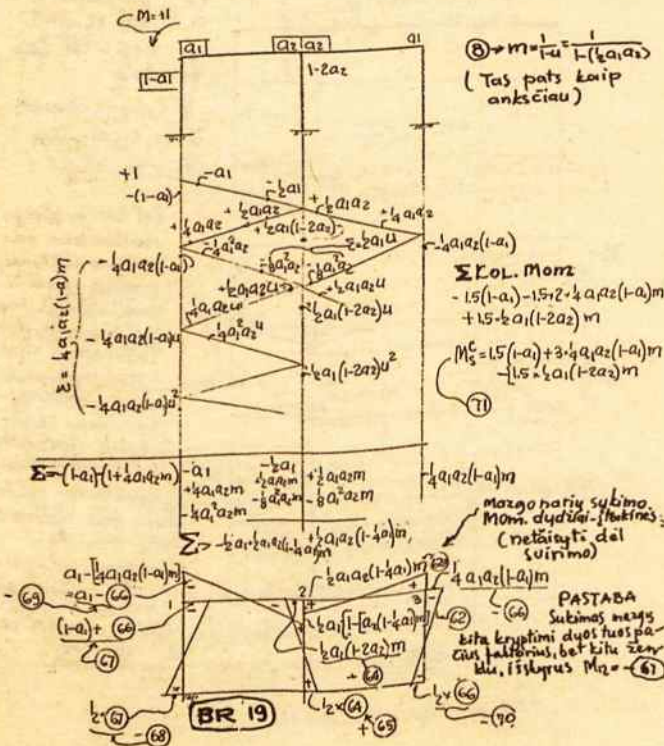 M=+1
a1 a2 a2 a1
1-a1
1-2a2
⑧→ m = 1/(1-u) = 1/(1-(½a1a2))
(Tas pats kaip
anksčiau)
+1
-(1-a1)
-a1
-½a1
+½a1a2
+¼a1a2
+½a1a2
+¼a1a2
+½a1(1-2a2)
-¼a1a2(1-a1)
Σ=½a1u
-¼a1²a2
-⅛a1²a2
-⅛a1²a2
-¼a1a2(1-a1)
+½a1a2u
+½a1a2u
½a1(1-2a2)u
¼a1a2u
-¼a1²a2u
-¼a1a2(1-a1)u
½a1(1-2a2)u²
-¼a1a2(1-a1)u²
Σ=¼a1a2(1-a1)m
Σ KOL. Mom
-1.5(1-a1)-1.5×2×¼a1a2(1-a1)m
+1.5×½a1(1-2a2)m
Mₛᶜ=1.5(1-a1)+3×¼a1a2(1-a1)m
-1.5×½a1(1-2a2)m
71
Σ=-(1-a1)-(1+¼a1a2m)
-a1
+¼a1a2m
-¼a1²a2m
-½a1
+½a1a2m
-⅛a1²a2m
+½a1a2m
-⅛a1²a2m
-¼a1a2(1-a1)m
Σ> -½a1+½a1a2(1-¼a1)m
+½a1a2(1-¼a1)m
Mazgo narių sukimo
Mom. dydžiai-
(netaisyti dėl
suirimo)
a1-[¼a1a2(1-a1)m]
=a1-66
-69
½a1a2(1-¼a1)m
¼a1a2(1-a1)m
-66
1 2 3
(1-a1)+66
67
½a1[1-[a2(1-¼a1)m]
62
½a1(1-2a2)m
64
PASTABA
Sukimas mazgų
kita kryptimi duos tuos pa-
čius faktorius, bet kitu žen-
klu, išskyrus M12=-61
½×67
-68
BR 19
½×64
+65
½×66
-70